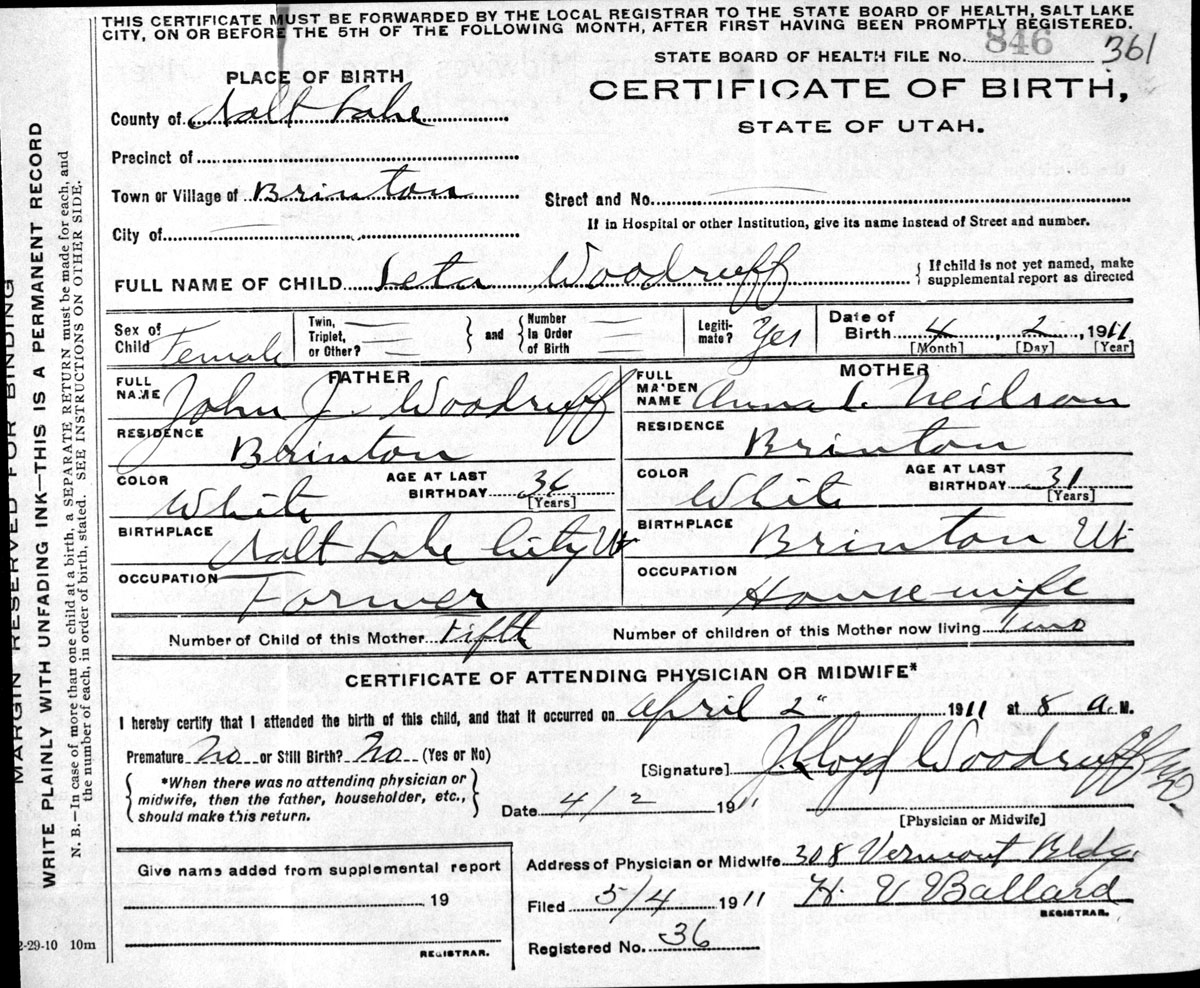 THIS CERTIFICATE MUST BE FORWARDED BY THE LOCAL REGISTRAR TO THE STATE BOARD OF HEALTH, SALT LAKE
CITY, ON OR BEFORE THE 5TH OF THE FOLLOWING MONTH, AFTER FIRST HAVING BEEN PROMPTLY REGISTERED.
STATE BOARD OF HEALTH FILE No. 846 361
PLACE OF BIRTH
CERTIFICATE OF BIRTH,
STATE OF UTAH.
County of Salt Lake
Precinct of
Town or Village of Brinton
Street and No.
City of
If in Hospital or other Institution, give its name instead of Street and number.
FULL NAME OF CHILD Leta Woodruff
{ If child is not yet named, make
supplemental report as directed
Sex of Child Female
Twin, Triplet, or Other? } and { Number In Order of Birth
Legiti-mate? Yes
Date of Birth 4, 2, 1911
[Month] [Day] [Year]
FATHER
FULL NAME John J. Woodruff
RESIDENCE Brinton
COLOR White AGE AT LAST BIRTHDAY 36 [Years]
BIRTHPLACE Salt Lake City Ut
OCCUPATION Farmer
MOTHER
FULL MAIDEN NAME Anna L. Neilson
RESIDENCE Brinton
COLOR White AGE AT LAST BIRTHDAY 31 [Years]
BIRTHPLACE Brinton Ut
OCCUPATION Housewife
Number of Child of this Mother Fifth Number of children of this Mother now living Two
CERTIFICATE OF ATTENDING PHYSICIAN OR MIDWIFE*
I hereby certify that I attended the birth of this child, and that it occurred on April 2" 1911 at 8 a. M.
Premature No or Still Birth? No (Yes or No)
[Signature] J Lloyd Woodruff MD
{ *When there was no attending physician or
midwife, then the father, householder, etc.,
should make this return. }
Date 4/2 1911
[Physician or Midwife]
Give name added from supplemental report
19
REGISTRAR.
Address of Physician or Midwife 308 Vermont Bldg.
Filed 5/4 1911 H. V Ballard
REGISTRAR.
Registered No. 36
2-29-10 10m
MARGIN RESERVED FOR BINDING
WRITE PLAINLY WITH UNFADING INK—THIS IS A PERMANENT RECORD
N. B.—In case of more than one child at a birth, a SEPARATE RETURN must be made for each, and
the number of each, in order of birth, stated. SEE INSTRUCTIONS ON OTHER SIDE.